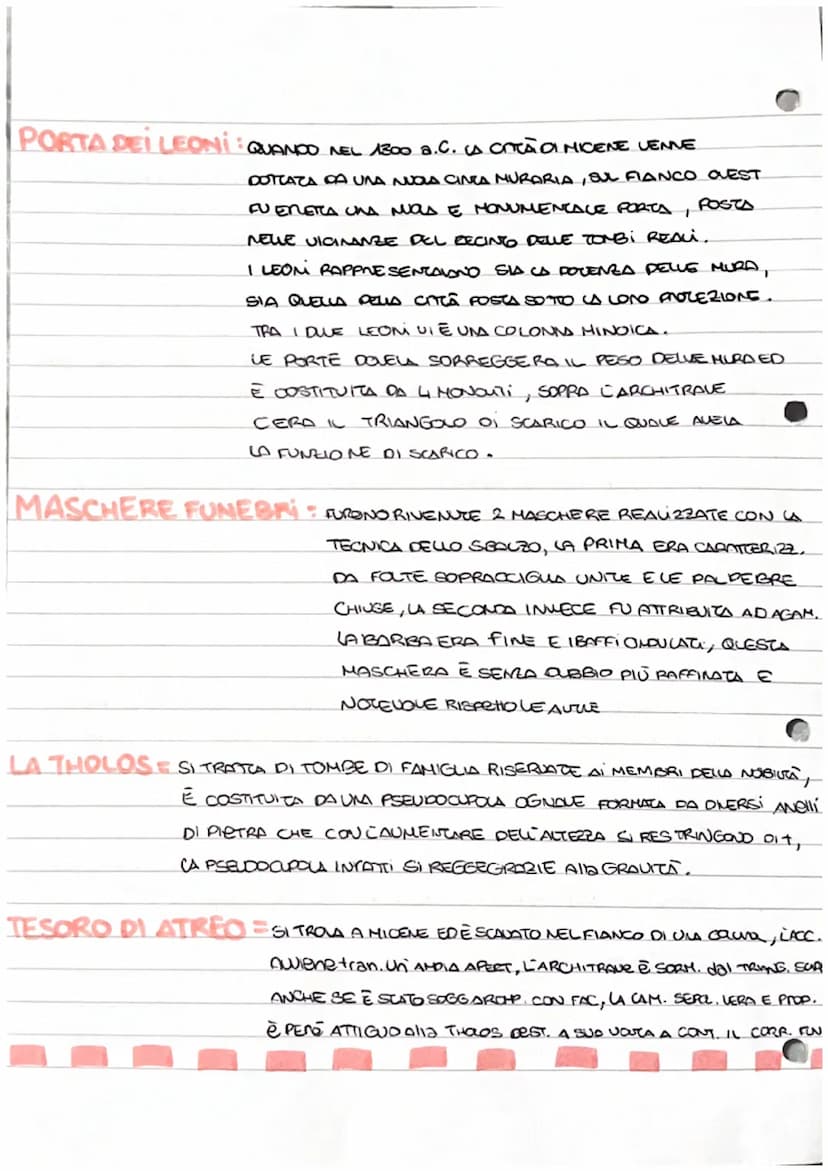 PORTA DEI LEONI: QUANDO NEL 1300 a.C. LA CITTÀ DI MICENE VENNE
DOTATA DA UNA NUOVA CINTA MURARIA, SUL FIANCO OVEST
FU ERETTA UNA NUOVA E MONUMENTALE PORTA, POSTA
NELLE VICINANZE DEL RECINTO DELLE TOMBI REALI.
I LEONI RAPPRESENTAVANO SIA LA POTENZA DELLE MURA,
SIA QUELLA DELLA CITTÀ POSTA SOTTO LA LORO PROTEZIONE.
TRA I DUE LEONI VI È UNA COLONNA MINOICA.
LE PORTE DOVEVA SORREGGERA IL PESO DELLE MURA ED
È COSTITUITA DA 4 MONOLITI, SOPRA L'ARCHITRAVE
C'ERA IL TRIANGOLO DI SCARICO IL QUALE AVEVA
LA FUNZIONE DI SCARICO.
MASCHERE FUNEBRI: FURONO RIVENUTE 2 MASCHERE REALIZZATE CON LA
TECNICA DELLO SBALZO, LA PRIMA ERA CARATTERIZZ.
DA FOLTE SOPRACCIGLIA UNITE E LE PALPEBRE
CHIUSE, LA SECONDA INVECE FU ATTRIBUITA AD AGAM.
LA BARBA ERA FINE E I BAFFI ONDULATI, QUESTA
MASCHERA È SENZA DUBBIO PIÙ RAFFINATA E
NOTEVOLE RISPETTO LE ALTRE
LA THOLOS= SI TRATTA DI TOMBE DI FAMIGLIA RISERVATE Ai MEMBRI DELLA NOBILTÀ,
È COSTITUITA DA UNA PSEUDOCUPOLA OGIVALE FORMATA DA DIVERSI ANELLI
DI PIETRA CHE CON L'AUMENTARE DELL'ALTEZZA SI RESTRINGONO DI +,
LA PSEUDOCUPOLA INFATTI SI REGGE GRAZIE Alla GRAVITÀ.
TESORO DI ATREO = SI TROVA A MICENE ED È SCAVATO NEL FIANCO DI UNA COLLINA, L'ACC.
Avviene tran. Un' AMPIA APERT, L'ARCHITRAVE È SORM. dal TRIANG. SCAR
ANCHE SE È STATO SOGG ARCHP. CON FAC, LA CAM. SEPOL. VERA E PROP.
È PERÒ ATTIGUO Alla THOLOS DEST. A SUA VOLTA A CONT. IL CORR. FUN